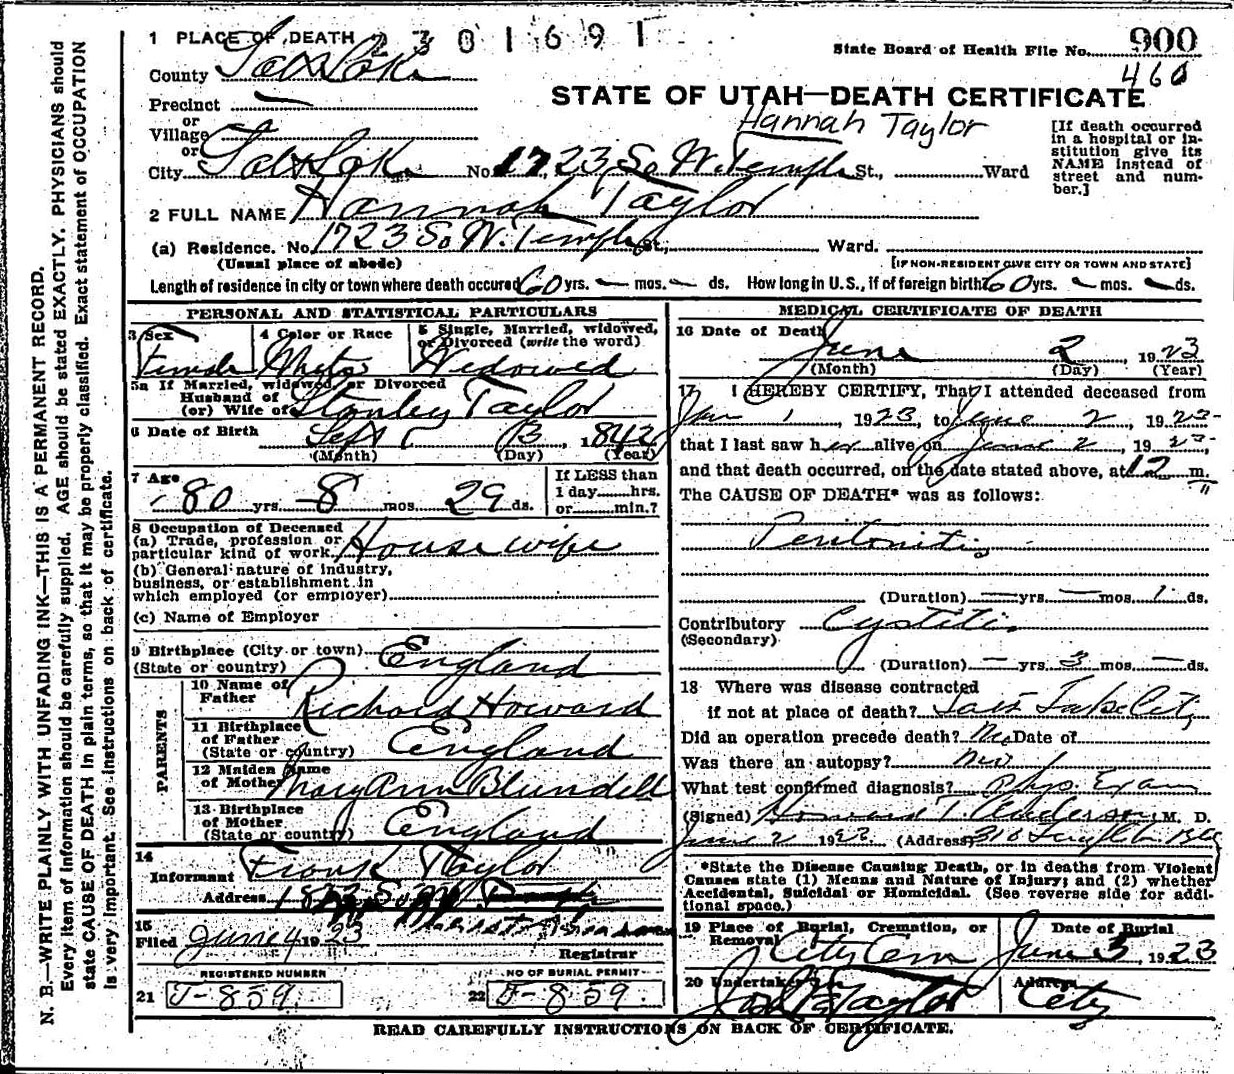 1 PLACE OF DEATH 2301691
State Board of Health File No. 900
County Salt Lake
460
STATE OF UTAH—DEATH CERTIFICATE
Precinct
or
Village
or
Hannah Taylor
City Salt Lake No. 1723 So W. Temple St., Ward
[If death occurred in a hospital or in-
stitution give its
NAME instead of
street and num-
ber.]
2 FULL NAME Hannah Taylor
(a) Residence. No. 1723 So W. Temple St., Ward.
(Usual place of abode)
[IF NON-RESIDENT GIVE CITY OR TOWN AND STATE]
Length of residence in city or town where death occured 60 yrs. — mos. — ds. How long in U. S., if of foreign birth? 60 yrs. — mos. — ds.
PERSONAL AND STATISTICAL PARTICULARS
3 Sex
Female
4 Color or Race
White
5 Single, Married, widowed,
or Divorced (write the word)
Widowed
5a If Married, widowed, or Divorced
Husband of
(or) Wife of Stanley Taylor
6 Date of Birth Sept 3, 1842
(Month) (Day) (Year)
7 Age
80 yrs. 8 mos. 29 ds.
If LESS than
1 day......hrs.
or......min.?
8 Occupation of Deceased
(a) Trade, profession or
particular kind of work. House wife
(b) General nature of industry,
business, or establishment in
which employed (or employer)
(c) Name of Employer
9 Birthplace (City or town) England
(State or country)
PARENTS
10 Name of
Father Richard Howard
11 Birthplace
of Father England
(State or country)
12 Maiden Name
of Mother Mary Ann Blundell
13 Birthplace
of Mother England
(State or country)
14
Informant Frank Taylor
Address
15
Filed June 4 1923
Registrar
REGISTERED NUMBER
21 J-859
NO OF BURIAL PERMIT
22 F-859
MEDICAL CERTIFICATE OF DEATH
16 Date of Death
June 2, 1923
(Month) (Day) (Year)
17 I HEREBY CERTIFY, That I attended deceased from
Jan 1, 1923, to June 2, 1923
that I last saw her alive on June 2, 1923,
and that death occurred, on the date stated above, at 12 m.
The CAUSE OF DEATH* was as follows:
Peritonitis
(Duration) — yrs. — mos. 1 ds.
Contributory Cystitis
(Secondary)
(Duration) — yrs. 3 mos. — ds.
18 Where was disease contracted
if not at place of death? Salt Lake City
Did an operation precede death? No Date of
Was there an autopsy? No
What test confirmed diagnosis? Phys. Exam
(Signed) Howard T. Anderson, M. D.
June 2 1923 (Address) 310 Templeton Bldg
*State the Disease Causing Death, or in deaths from Violent
Causes state (1) Means and Nature of Injury; and (2) whether
Accidental, Suicidal or Homicidal. (See reverse side for addi-
tional space.)
19 Place of Burial, Cremation, or
Removal City Cem
Date of Burial
June 3, 1923
20 Undertaker
Taylor
Address
City
READ CAREFULLY INSTRUCTIONS ON BACK OF CERTIFICATE.
N. B.—WRITE PLAINLY WITH UNFADING INK—THIS IS A PERMANENT RECORD.
Every item of information should be carefully supplied. AGE should be stated EXACTLY. PHYSICIANS should
state CAUSE OF DEATH in plain terms, so that it may be properly classified. Exact statement of OCCUPATION
is very important. See instructions on back of certificate.